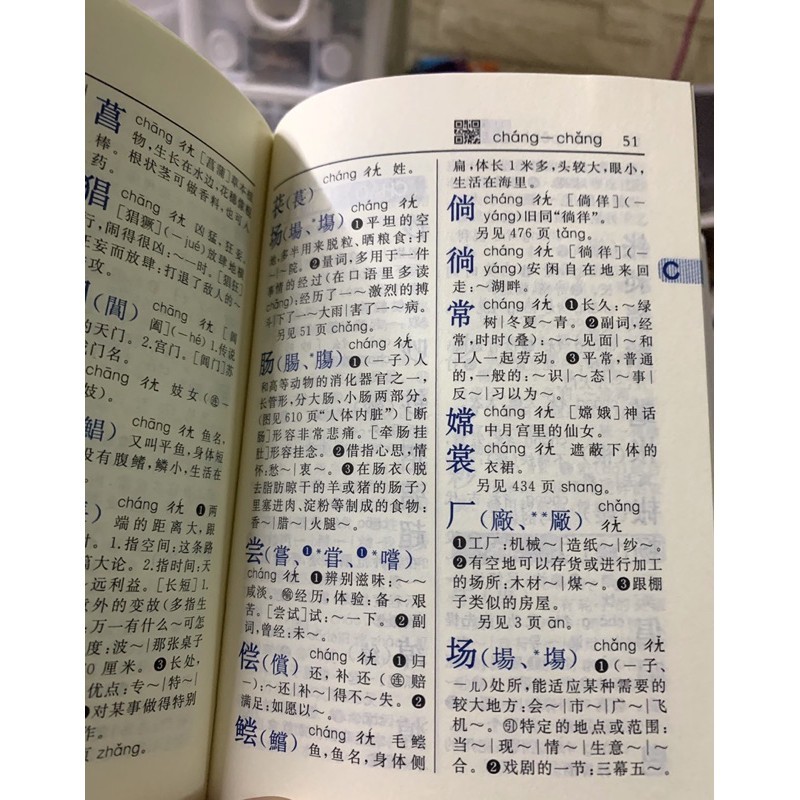 菖 chāng ㄔㄤ [菖蒲]草本植
物，生长在水边，花穗像
棒。根状茎可做香料，也可入
药。
猖 chāng ㄔㄤ 凶猛，狂妄。
[猖獗](－jué)放肆地横
行，闹得很凶：～～一时。[猖狂]
狂妄而放肆：打退了敌人的～
进攻。
(閶) chāng ㄔㄤ [阊
阖](－hé)1.传说
的天门。2.宫门。[阊门]苏
城门名。
chāng ㄔㄤ 妓女(连－
妓)。
(鯧) chāng ㄔㄤ 鱼名，
又叫平鱼，身体短
没有腹鳍，鳞小，生活在
cháng ㄔㄤ ❶两
端的距离大，跟
1.指空间：这条路
2.指时间：天
长篇大论。
～远利益。[长短]1.
意外的变故(多指生
万一有什么～可怎
度：波～|那张桌子
70 厘米。❸长处，
优点：专～|特～|
❶对某事做得特别
页 zhǎng。
cháng—chǎng 51
苌(萇) cháng ㄔㄤ 姓。
场(場、*塲) cháng ㄔㄤ
❶平坦的空
地，多半用来脱粒、晒粮食：打
～|～院。❷量词，多用于一件
事情的经过(在口语里多读
chǎng)：经历了一～激烈的搏
斗|下了一～大雨|害了一～病。
另见 51 页 chǎng。
肠(腸、*膓) cháng ㄔㄤ
❶(－子)人
和高等动物的消化器官之一，
长管形，分大肠、小肠两部分。
(图见 610 页“人体内脏”)[断
肠]形容非常悲痛。[牵肠挂
肚]形容挂念。❷借指心思，情
怀：愁～|衷～。❸在肠衣(脱
去脂肪晾干的羊或猪的肠子)
里塞进肉、淀粉等制成的食物：
香～|腊～|火腿～。
尝(嘗、❶*甞、❶*嚐)
cháng ㄔㄤ ❶辨别滋味：～～
咸淡。㊙经历，体验：备～艰
苦。[尝试]试：～～一下。❷副
词，曾经：未～。
偿(償) cháng ㄔㄤ ❶归
还，补还(连赔
－)：～还|补～|得不～失。❷
满足：如愿以～。
鲿(鱨) cháng ㄔㄤ 毛鲿
鱼，鱼名，身体侧
扁，体长 1 米多，头较大，眼小，
生活在海里。
倘 cháng ㄔㄤ [倘佯](－
yáng)旧同“徜徉”。
另见 476 页 tǎng。
徜 cháng ㄔㄤ [徜徉](－
yáng)安闲自在地来回
走：～湖畔。
C
常 cháng ㄔㄤ ❶长久：～绿
树|冬夏～青。❷副词，经
常，时时(叠)：～～见面|～和
工人一起劳动。❸平常，普通
的，一般的：～识|～态|～事|
反～|习以为～。
嫦 cháng ㄔㄤ [嫦娥]神话
中月宫里的仙女。
裳 cháng ㄔㄤ 遮蔽下体的
衣裙。
另见 434 页 shang。
厂(廠、**厰) chǎng ㄔㄤˇ
❶工厂：机械～|造纸～|纱～。
❷有空地可以存货或进行加工
的场所：木材～|煤～。❸跟棚
子类似的房屋。
另见 3 页 ān。
场(場、*塲) chǎng ㄔㄤˇ
❶(－子、
－儿)处所，能适应某种需要的
较大地方：会～|市～|广～|飞
机～。㊁特定的地点或范围：
当～|现～|情～|生意～|～
合。❷戏剧的一节：三幕五～。